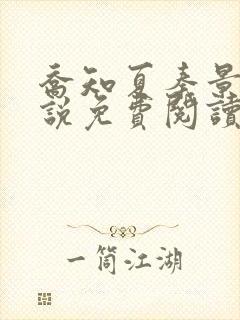 喬知夏秦景
說免費閱讀
一筒江湖